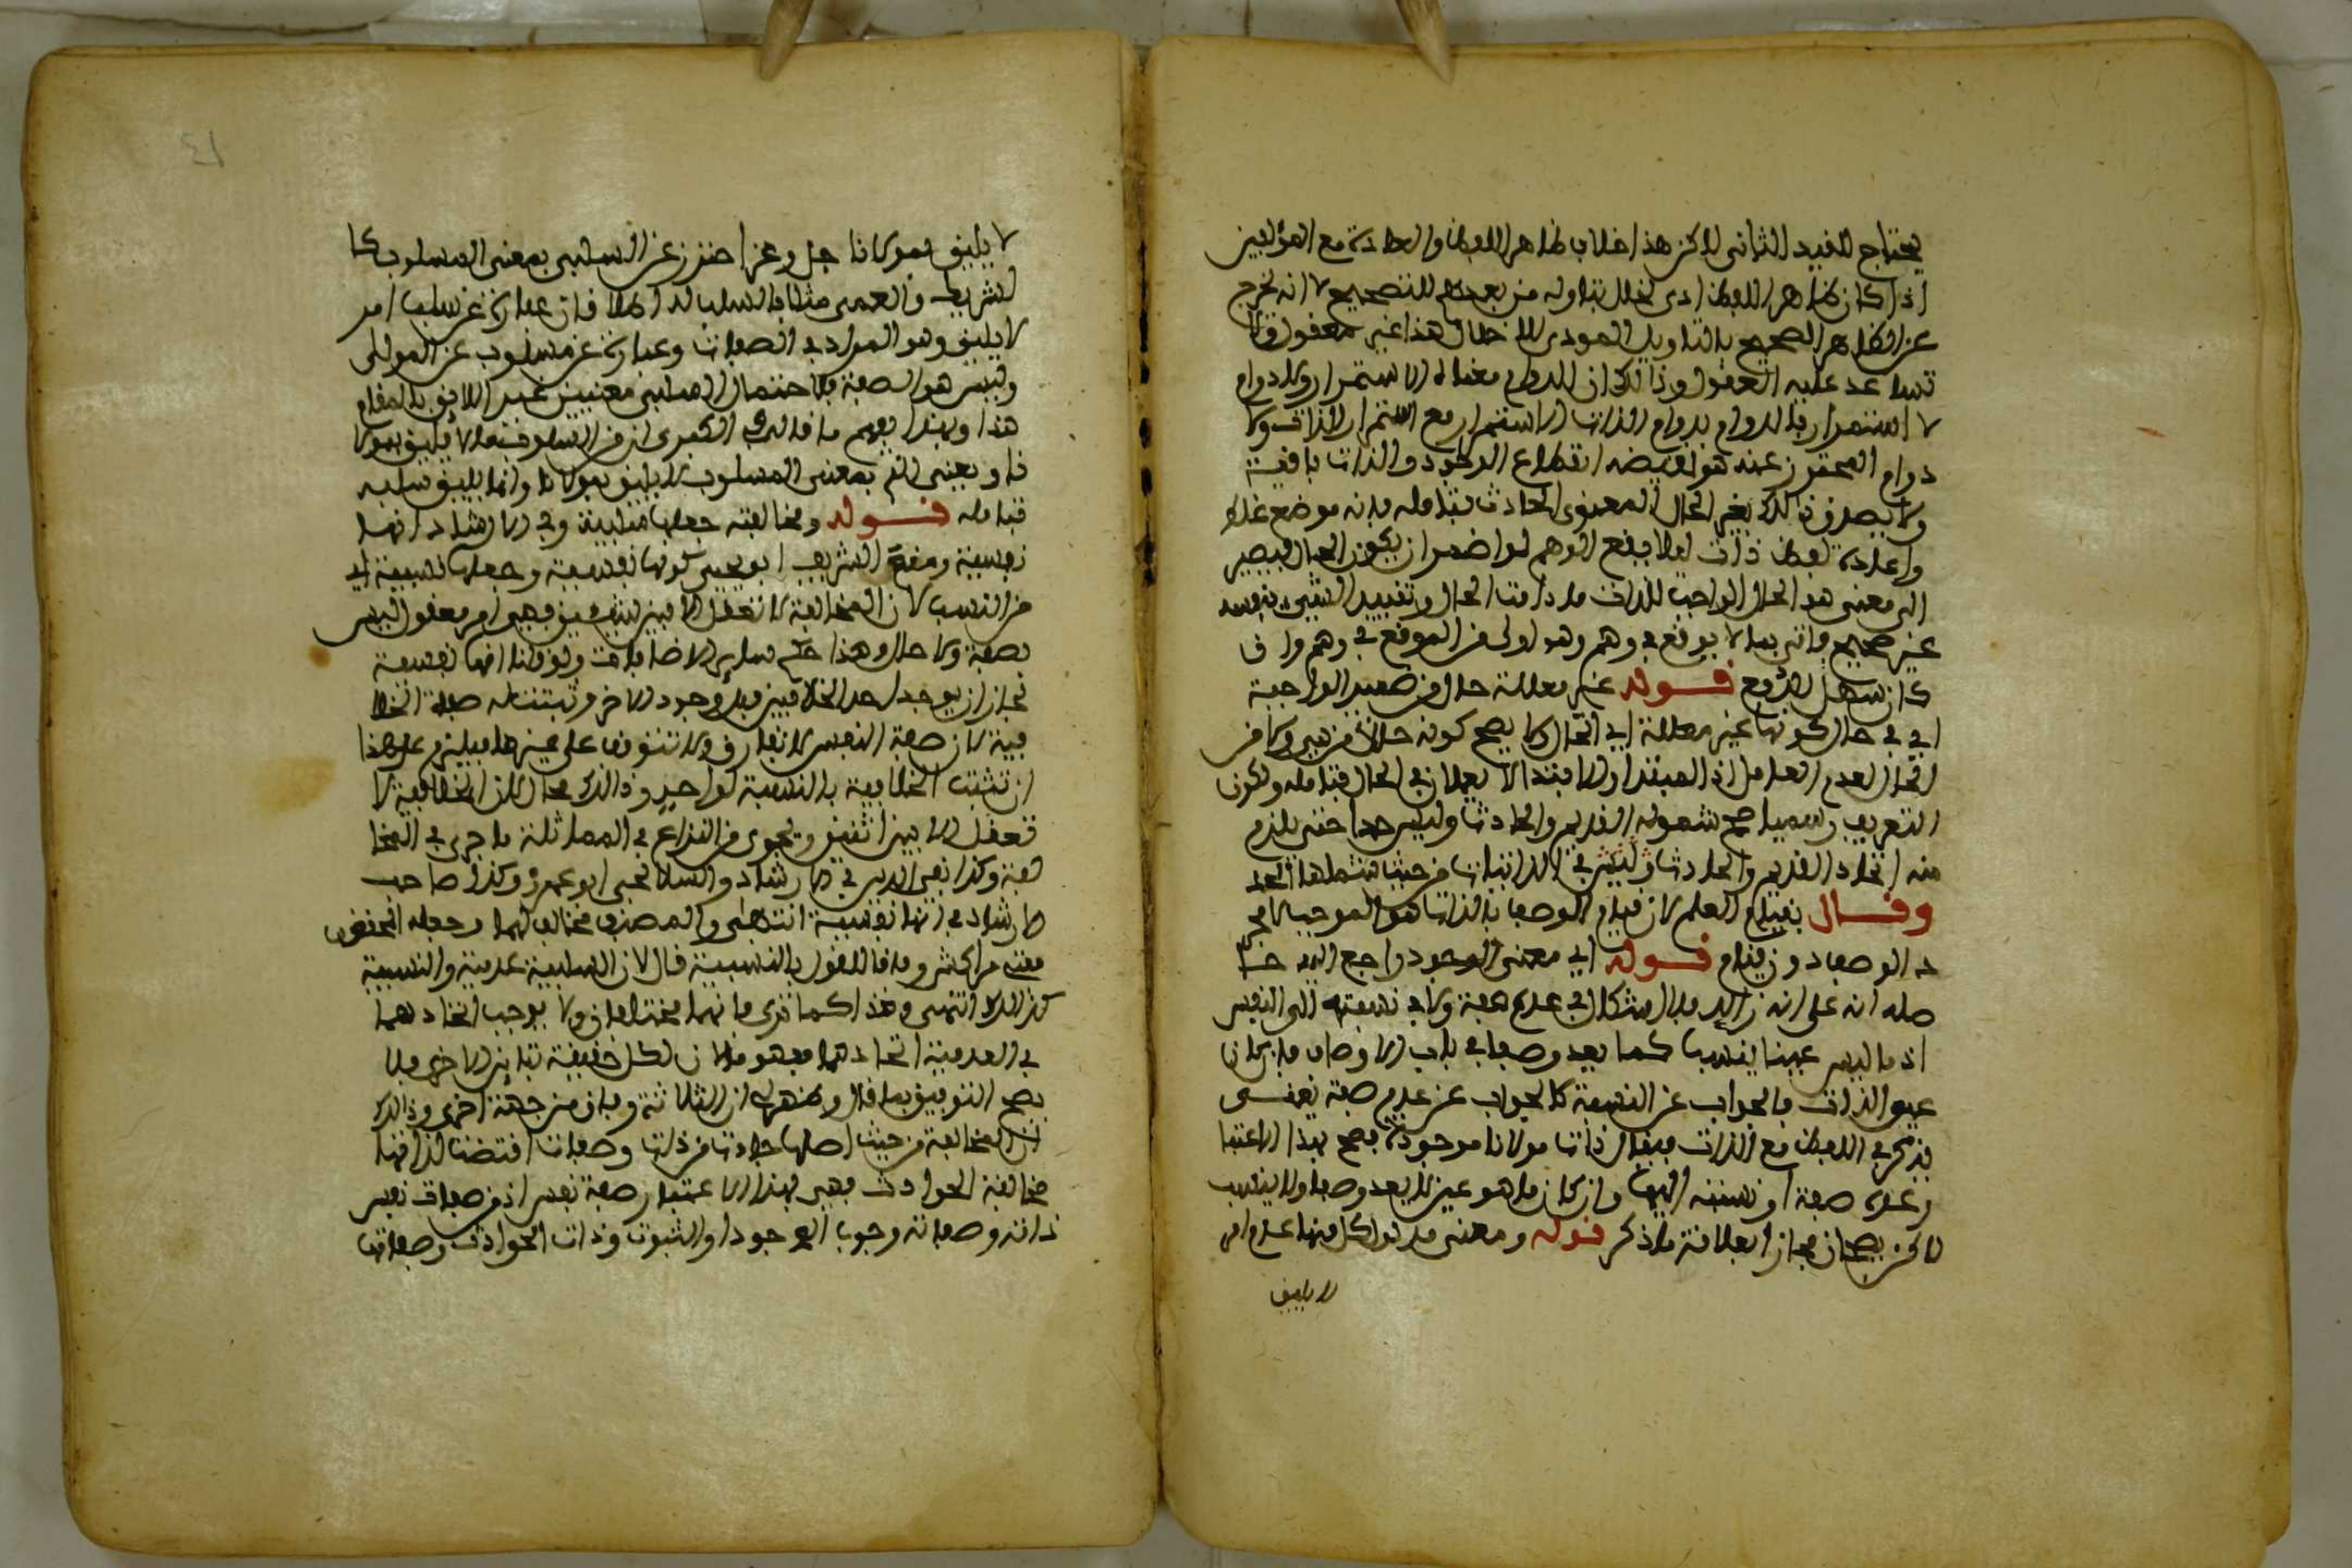 يحتاج للقيد الثاني لاكن هذا خلاف ظاهر اللفظ والعادة مع المؤلفين
اذا كان ظاهر اللفظ ادى لخلل تناوله من بعدهم للتصحيح لا انه يخرج
عن الظاهر الصحيح بالتاويل المودى للاخلال هذا غير معقول ولا
تساعد عليه العقول وذالك ان الدوام معناه الاستمرار ولا دوام
لا استمرار فالدوام بدوام الذات الاستمرار مع استمرار الذات ولا
دوام المحترز عنه هو نقيضه انقطاع الوجود والذات باقية
ولا يصدق ذالك بغير الحال المعنوى الحادث فتامله فانه موضع غلط
واعادة لفظ ذات لئلا يقع الوهم لو اضمر ان يكون الحال فيصير
الى معنى هو الحال الواجب للذات ما دامت الحال وتقييد الشيء بنفسه
غير صحيح فاتى بما لا يوقع في وهم وهو اولى من الموقع في وهم وان
كان سهل الدفع قوله غير معللة حال من ضمير الواجبة
اي في حال كونها غير معللة اي الحال ولا يصح كونه حالا من هي ولا من
الحال لعدم العامل اذ المبتدا والابتدا لا يعملان في الحال فتامله ولكون
التعريف رسميا صح شموله القديم والحادث وليس حدا حتى يلزم
منه اتحاد القديم والحادث وليس في الذاتيات من حيث شملها الحد
وقال بقيام العلم لان قيام الوصف بالذات هو الموجب لا مجر
د الوصف دون قيام قوله اي معنى الوجود راجع اليه حا
صله انه على انه زائد فلا اشكال في عده صفة ولا في نسبته الى النفس
اذ ما ليس عينا ينسب كما يعد وصفا في باب الاوصاف فان كان
عين الذات فالجواب عن النسبة كالجواب عن عدم صفة يعنى
يذكر في اللفظ مع الذات فيقال ذات مولانا موجودة فصح بهذا الاعتبا
ر عده صفة او نسبته اليها وان كان ما هو عين لا يعد وصفا ولا ينسب
لاكن يصحان مجازا لعلاقة ما ذكر قوله ومعنى مدلول كل منها عدم امر
لا يليق
٤١
لا يليق بمولانا جل وعز احترز عن السلبي بمعنى المسلوب كا
لشريك والعمى مثلا فالسلب له اطلاقان عبارة عن سلب امر
لا يليق وهو المراد في الصفات وعبارة عن مسلوب عن المولى
وليس هو الصفة فلاحتمال السلبي معنيين غير اللائق بالمقام
هذا وبهذا يفهم ما قاله في الكبرى ان من السلوب ما لا يليق بمولا
نا ويعنى انه بمعنى المسلوب لا يليق بمولانا وانما يليق سلبه
فتامله قوله ومخالفته جعلها سلبية وفي الارشاد انها
نفسية ومنع الشريف ابو يحيى كونها نفسية وجعلها نسبية اي
من النسب لان المخالفة لا تعقل الا بين شيئين فهي امر معقول ليس
بصفة ولا حال وهذا حكم ساير الاضافات ولو قلنا انها نفسية
لجاز ان يوجد احد الخلافين قبل وجود الاخر وثبتت له صفة الخلا
فية لان صفة النفس لا تفارق ولا تتوقف على غيرها فيلزم على هذا
ان تثبت الخلافية بالنسبة لواحد وذالك محال لان الخلافية لا
تعقل الا بين اثنين ويجرى من النزاع في المماثلة ما جرى في المخا
لفة وكذا تقي الدين في الارشاد والسلالجي ابو عمرو وكذا صاحب
الارشاد في انها نفسية انتهى والمصنف مخالف لهما وجعله المحقق
مفتى مراكش وما قال القول بالنسبية قال لان السلبية عدمية والنسبية
كذالك انتهى وهذا كما ترى فانهما مختلفان ولا يوجب اتحادهما
في العدمية اتحادهما مفهوما لان لكل حقيقة تباين الاخرى فلا
يصح التوفيق بما قال وظهر لي ان الثلاثة وفاق من جهة اخرى وذالك
ان المخالفة من حيث اصلها جاءت من ذات وصفات اقتضت لذاتها
مخالفة الحوادث فهي بهذا الاعتبار صفة نفس اذ من صفات نفس
ذاته وصفاته وجوب الوجود او الثبوت وذات الحوادث وصفاتها